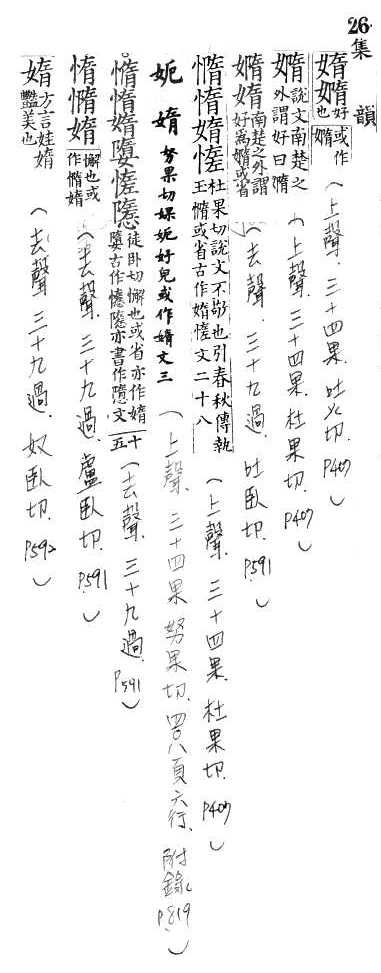 26.
集韻
媠嫷好也或作嫷(上聲.三十四果.吐火切.P407)
嫷說文南楚之外謂好曰嫷(上聲.三十四果.杜果切.P407)
嫷媠南楚之外謂好為嫷或省(去聲.三十九過.吐臥切.P591)
憜惰媠杜果切說文不敬也引春秋傳執玉憜或省古作媠文二十八(上聲.三十四果.杜果切.P407)
媠努果切婐好皃或作媠文三(上聲.三十四果努果切.四〇八頁六行.附錄P819)
惰憜媠徒臥切懈也或省亦作媠古作亦書作文十五(去聲.三十九過.P591)
惰憜媠懈也或作憜媠(去聲三十九過.盧臥切.P591)
媠方言娃媠豔美也(去聲三十九過.奴臥切.P592)